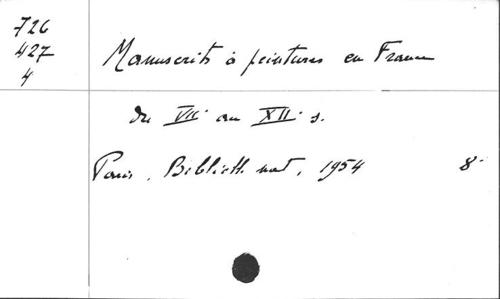 726
427
4
Manuscrits à peintures en France
du VIIe au XIIe s.
Paris, Biblioth. nat., 1954 8°